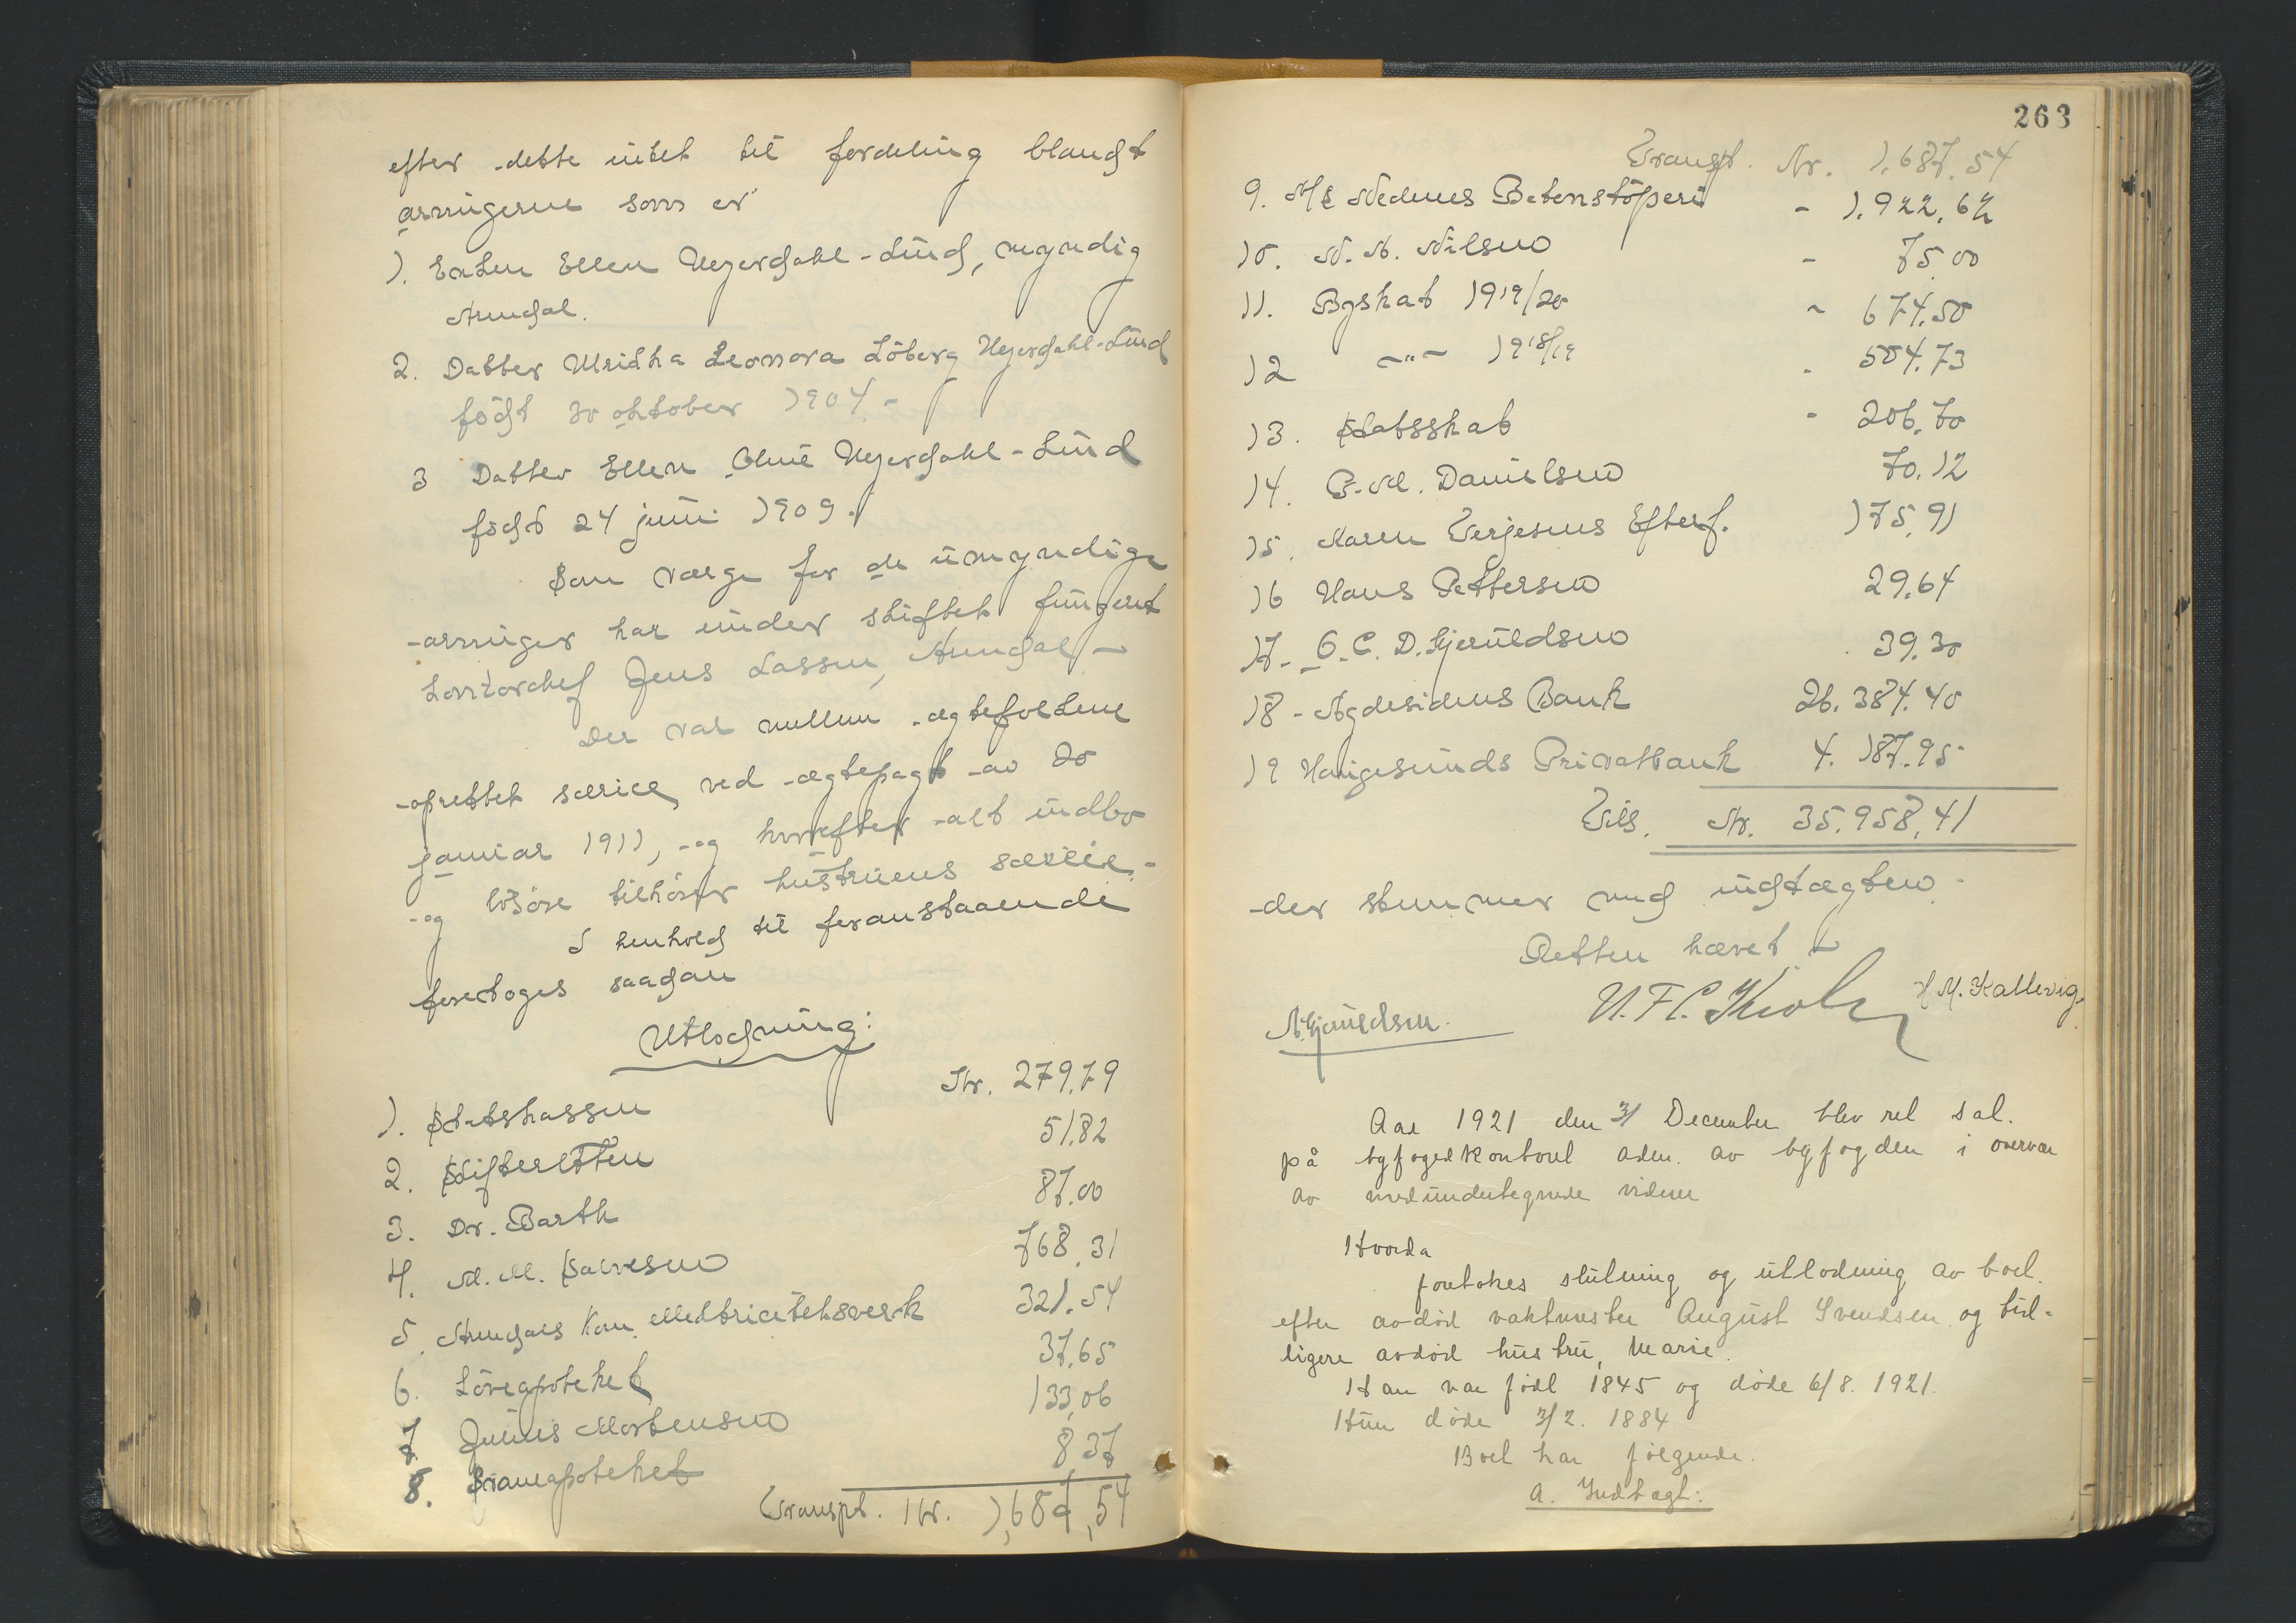 efter dette intet til fordeling blandt
arvingerne som er
1. Enken Ellen Heyerdahl-Lund, myndig
Arendal.
2. Datter Ulrikka Leonora Löberg Heyerdahl-Lund
födt 30 oktober 1904 -
3 Datter Ellen Heyerdahl-Lund
födt 24 juni 1909.
Som værge for de umyndige
arvinger har under skiftet fungert
kontorchef Jens Lassen, Arendal -
Der var mellem ægtefolkene
oprettet særeie ved ægtepagt av 20
januar 1911, og hvorefter alt indbo
og lösöre tilhörer hustruens særeie.
I henhold til foranstaaende
foretoges saadan
Utlodning:
1. Statskassen Kr. 279.79
2. Skifteretten 51.82
3. Dr. Barth 87.00
4. M. M. Salvesen 768.31
5. Arendals Kom. Elektricitetsverk 321.54
6. Löveapoteket 37.65
7. Julius Mortensen 133.06
8. Svaneapoteket 8.37
Transpt. Kr. 1,687,54
263
Transpt. Kr. 1.687.54
9. A/S Nedenes Betonstöperi - 1.922.62
10. N. A. Nilsen - 75.00
11. Byskat 1919/20 - 674.50
12 -"- 1918/19 - 504.73
13. Statsskat - 206.70
14. P. M. Danielsen 70.12
15. Karen Terjesens Efterf. 175.91
16 Hans Pettersen 29.64
17. O. C. D. Gjeruldsen 39.30
18 - Agdesidens Bank 26.384.40
19 Haugesunds Privatbank 4.187.95
Tils. Kr. 35.958,41
der stemmer med indtægten -
Retten hævet -
N. Gjeruldsen. U. F. C. H. M. Kallevig.
Aar 1921 den 31 December blev ret sat
på byfogedkontoret adm. av byfogden i overvær
av medundertegnede vidner
Hvorda
foretokes slutning og utlodning av boet
efter avdöd vaktmester August Svendsen og tid-
ligere avdöd hustru, Marie.
Han var födt 1845 og döde 6/8. 1921.
Hun döde 3/2. 1884
Boet har fölgende.
A. Indtægt: